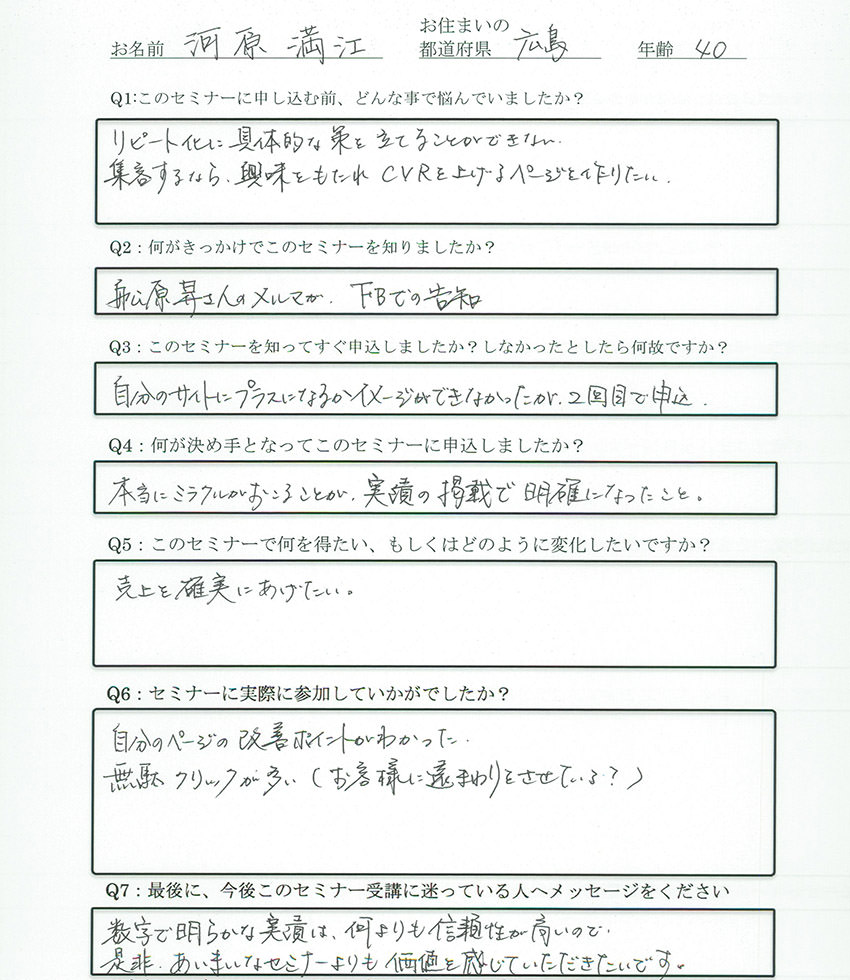 お名前 河原 満江 お住まいの都道府県 広島 年齢 40
Q1:このセミナーに申し込む前、どんな事で悩んでいましたか？
リピート化に具体的な策を立てることができない.
集客するなら、興味をもたれ CVRを上げるページを作りたい.
Q2：何がきっかけでこのセミナーを知りましたか？
船原昇さんのメルマガ. FBでの告知
Q3：このセミナーを知ってすぐ申込しましたか？しなかったとしたら何故ですか？
自分のサイトにプラスになるかイメージができなかったが、2回目で申込.
Q4：何が決め手となってこのセミナーに申込しましたか？
本当にミラクルがおこることが、実績の掲載で明確になったこと。
Q5：このセミナーで何を得たい、もしくはどのように変化したいですか？
売上を確実にあげたい。
Q6：セミナーに実際に参加していかがでしたか？
自分のページの改善ポイントがわかった.
無駄クリックが多い（お客様に遠まわりをさせている？）
Q7：最後に、今後このセミナー受講に迷っている人へメッセージをください
数字で明らかな実績は、何よりも信頼性が高いので.
是非、あいまいなセミナーよりも価値を感じていただきたいです。